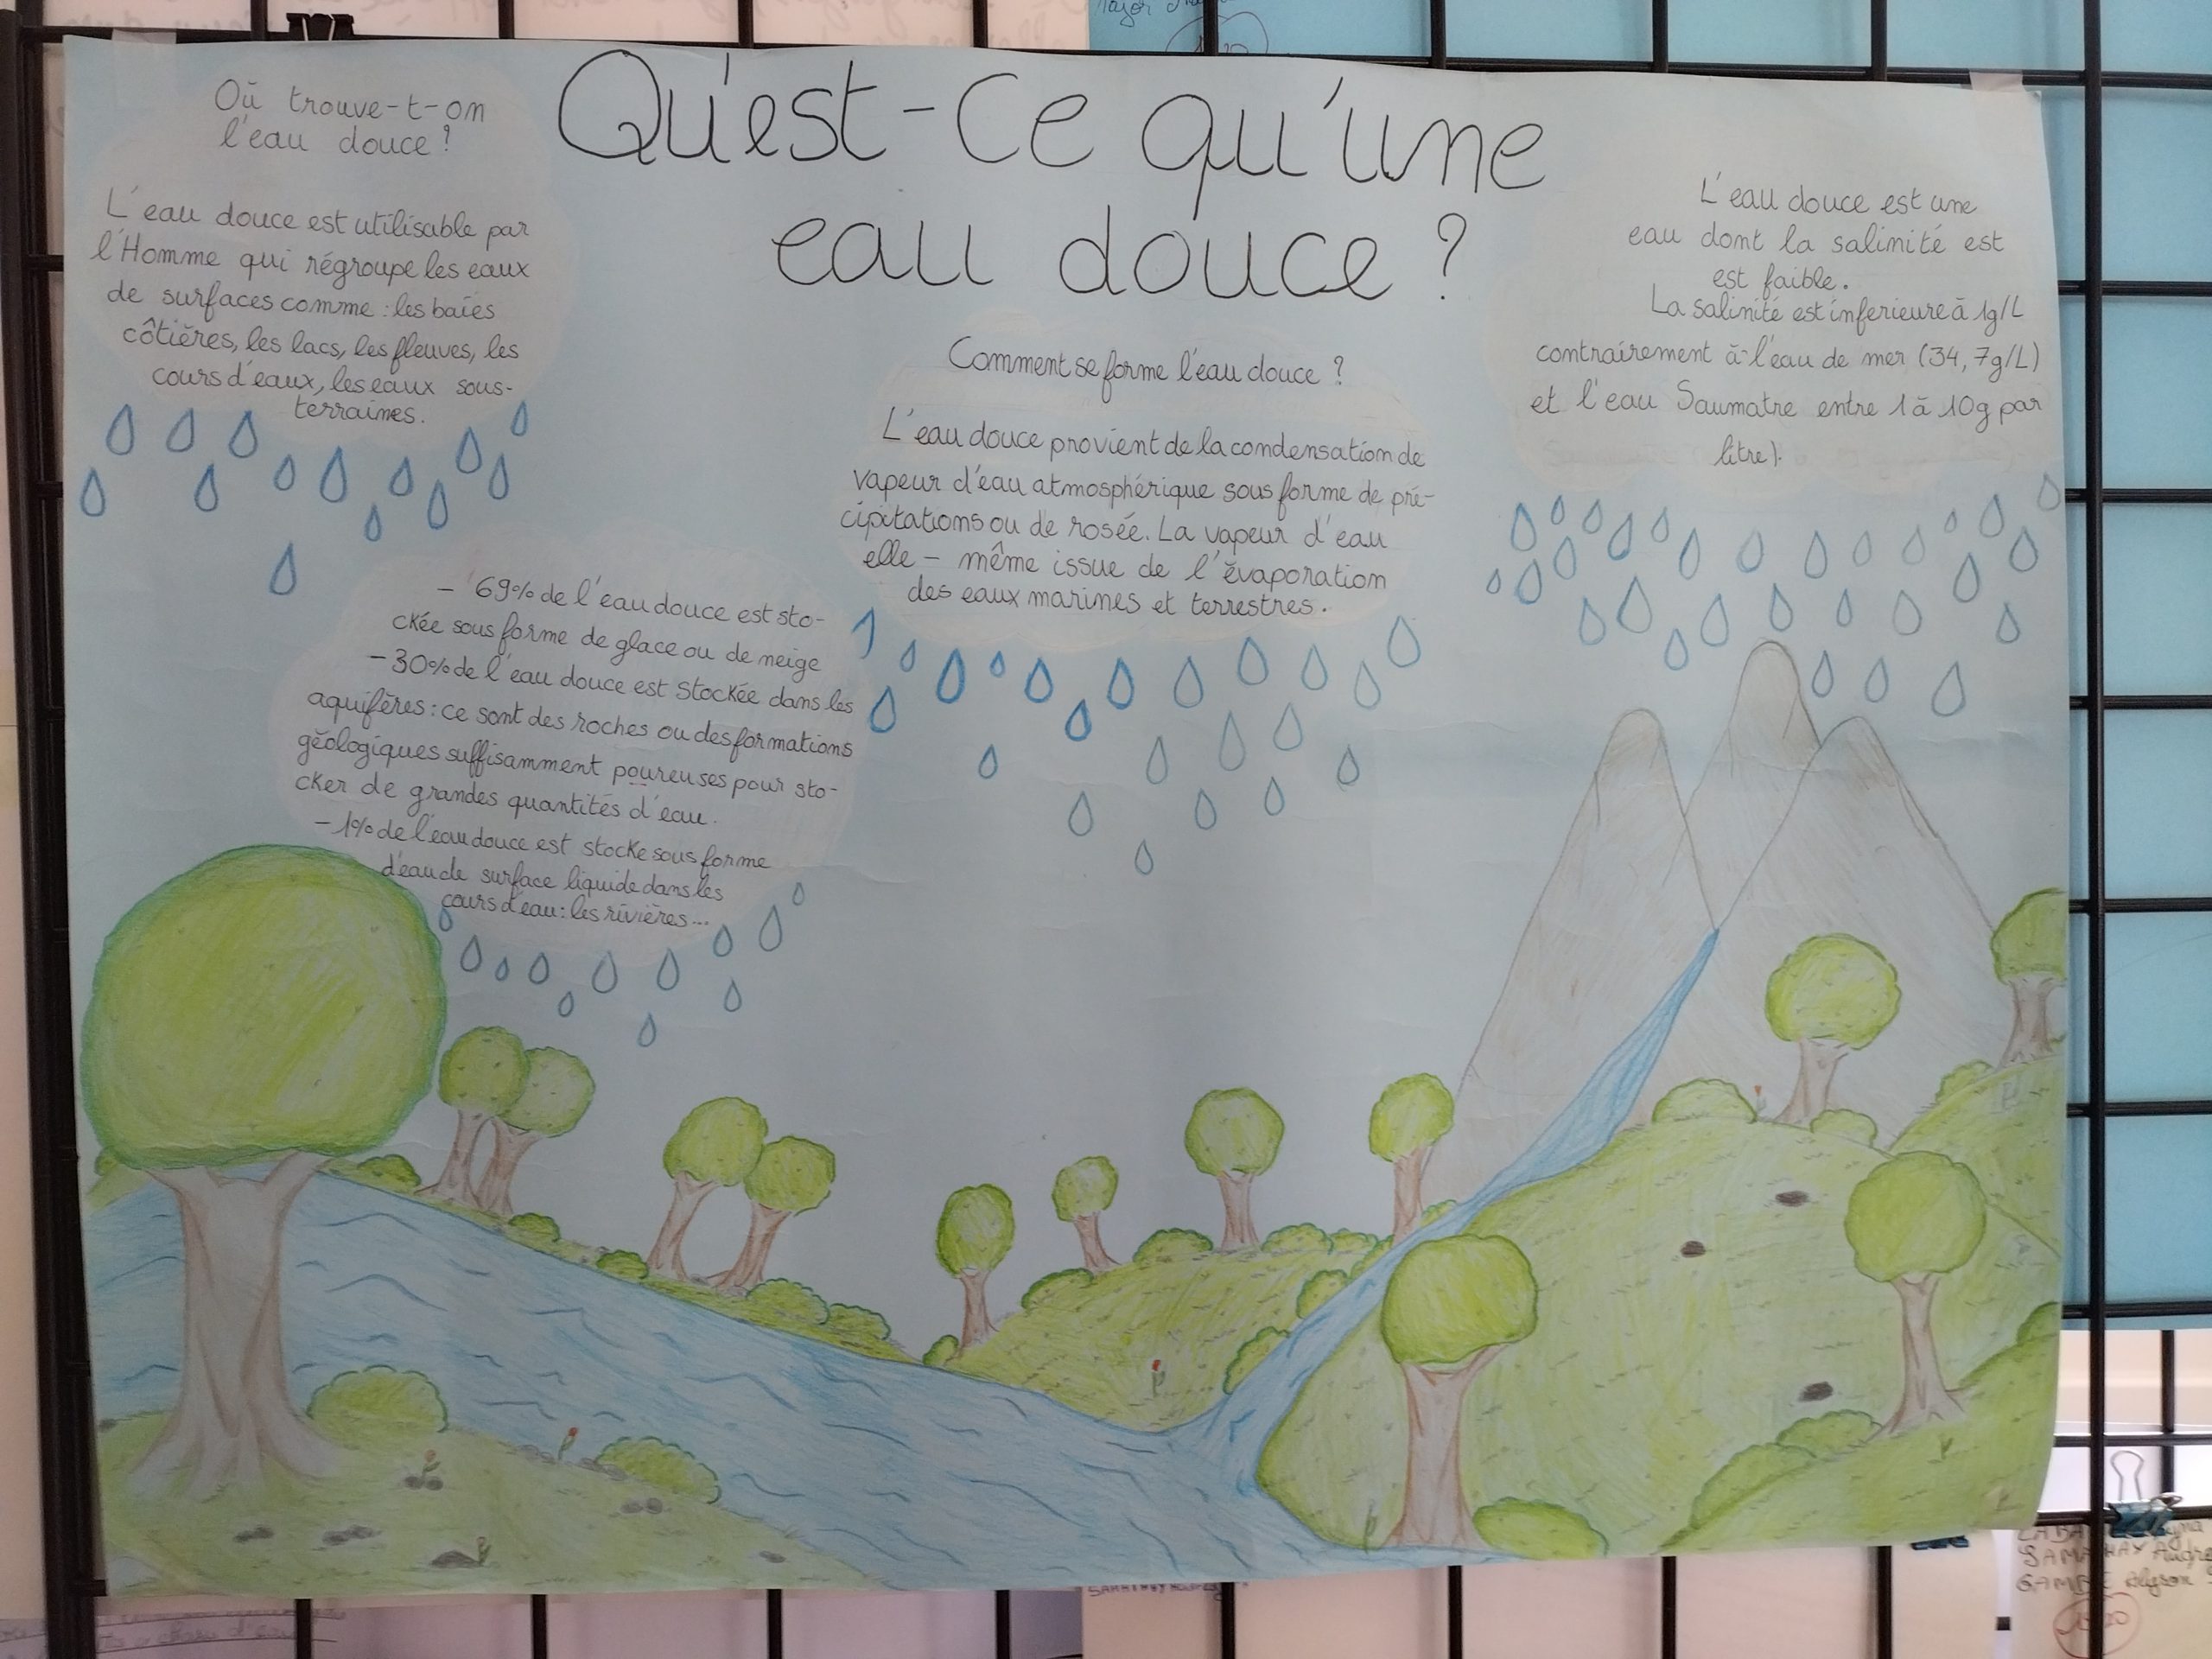 Qu'est-ce qu'une
eau douce ?
Où trouve-t-on
l'eau douce ?
L'eau douce est utilisable par
l'Homme qui régroupe les eaux
de surfaces comme : les baies
côtières, les lacs, les fleuves, les
cours d'eaux, les eaux sous-
terraines.
- 69% de l'eau douce est sto-
ckée sous forme de glace ou de neige
- 30% de l'eau douce est stockée dans les
aquifères : ce sont des roches ou des formations
géologiques suffisamment poureuses pour sto-
cker de grandes quantités d'eau.
- 1% de l'eau douce est stocke sous forme
d'eau de surface liquide dans les
cours d'eau : les rivières...
Comment se forme l'eau douce ?
L'eau douce provient de la condensation de
vapeur d'eau atmosphérique sous forme de pré-
cipitations ou de rosée. La vapeur d'eau
elle - même issue de l'évaporation
des eaux marines et terrestres.
L'eau douce est une
eau dont la salinité est
est faible.
La salinité est inferieure à 1g/L
contrairement à l'eau de mer (34,7g/L)
et l'eau Saumatre entre 1 à 10g par
litre).